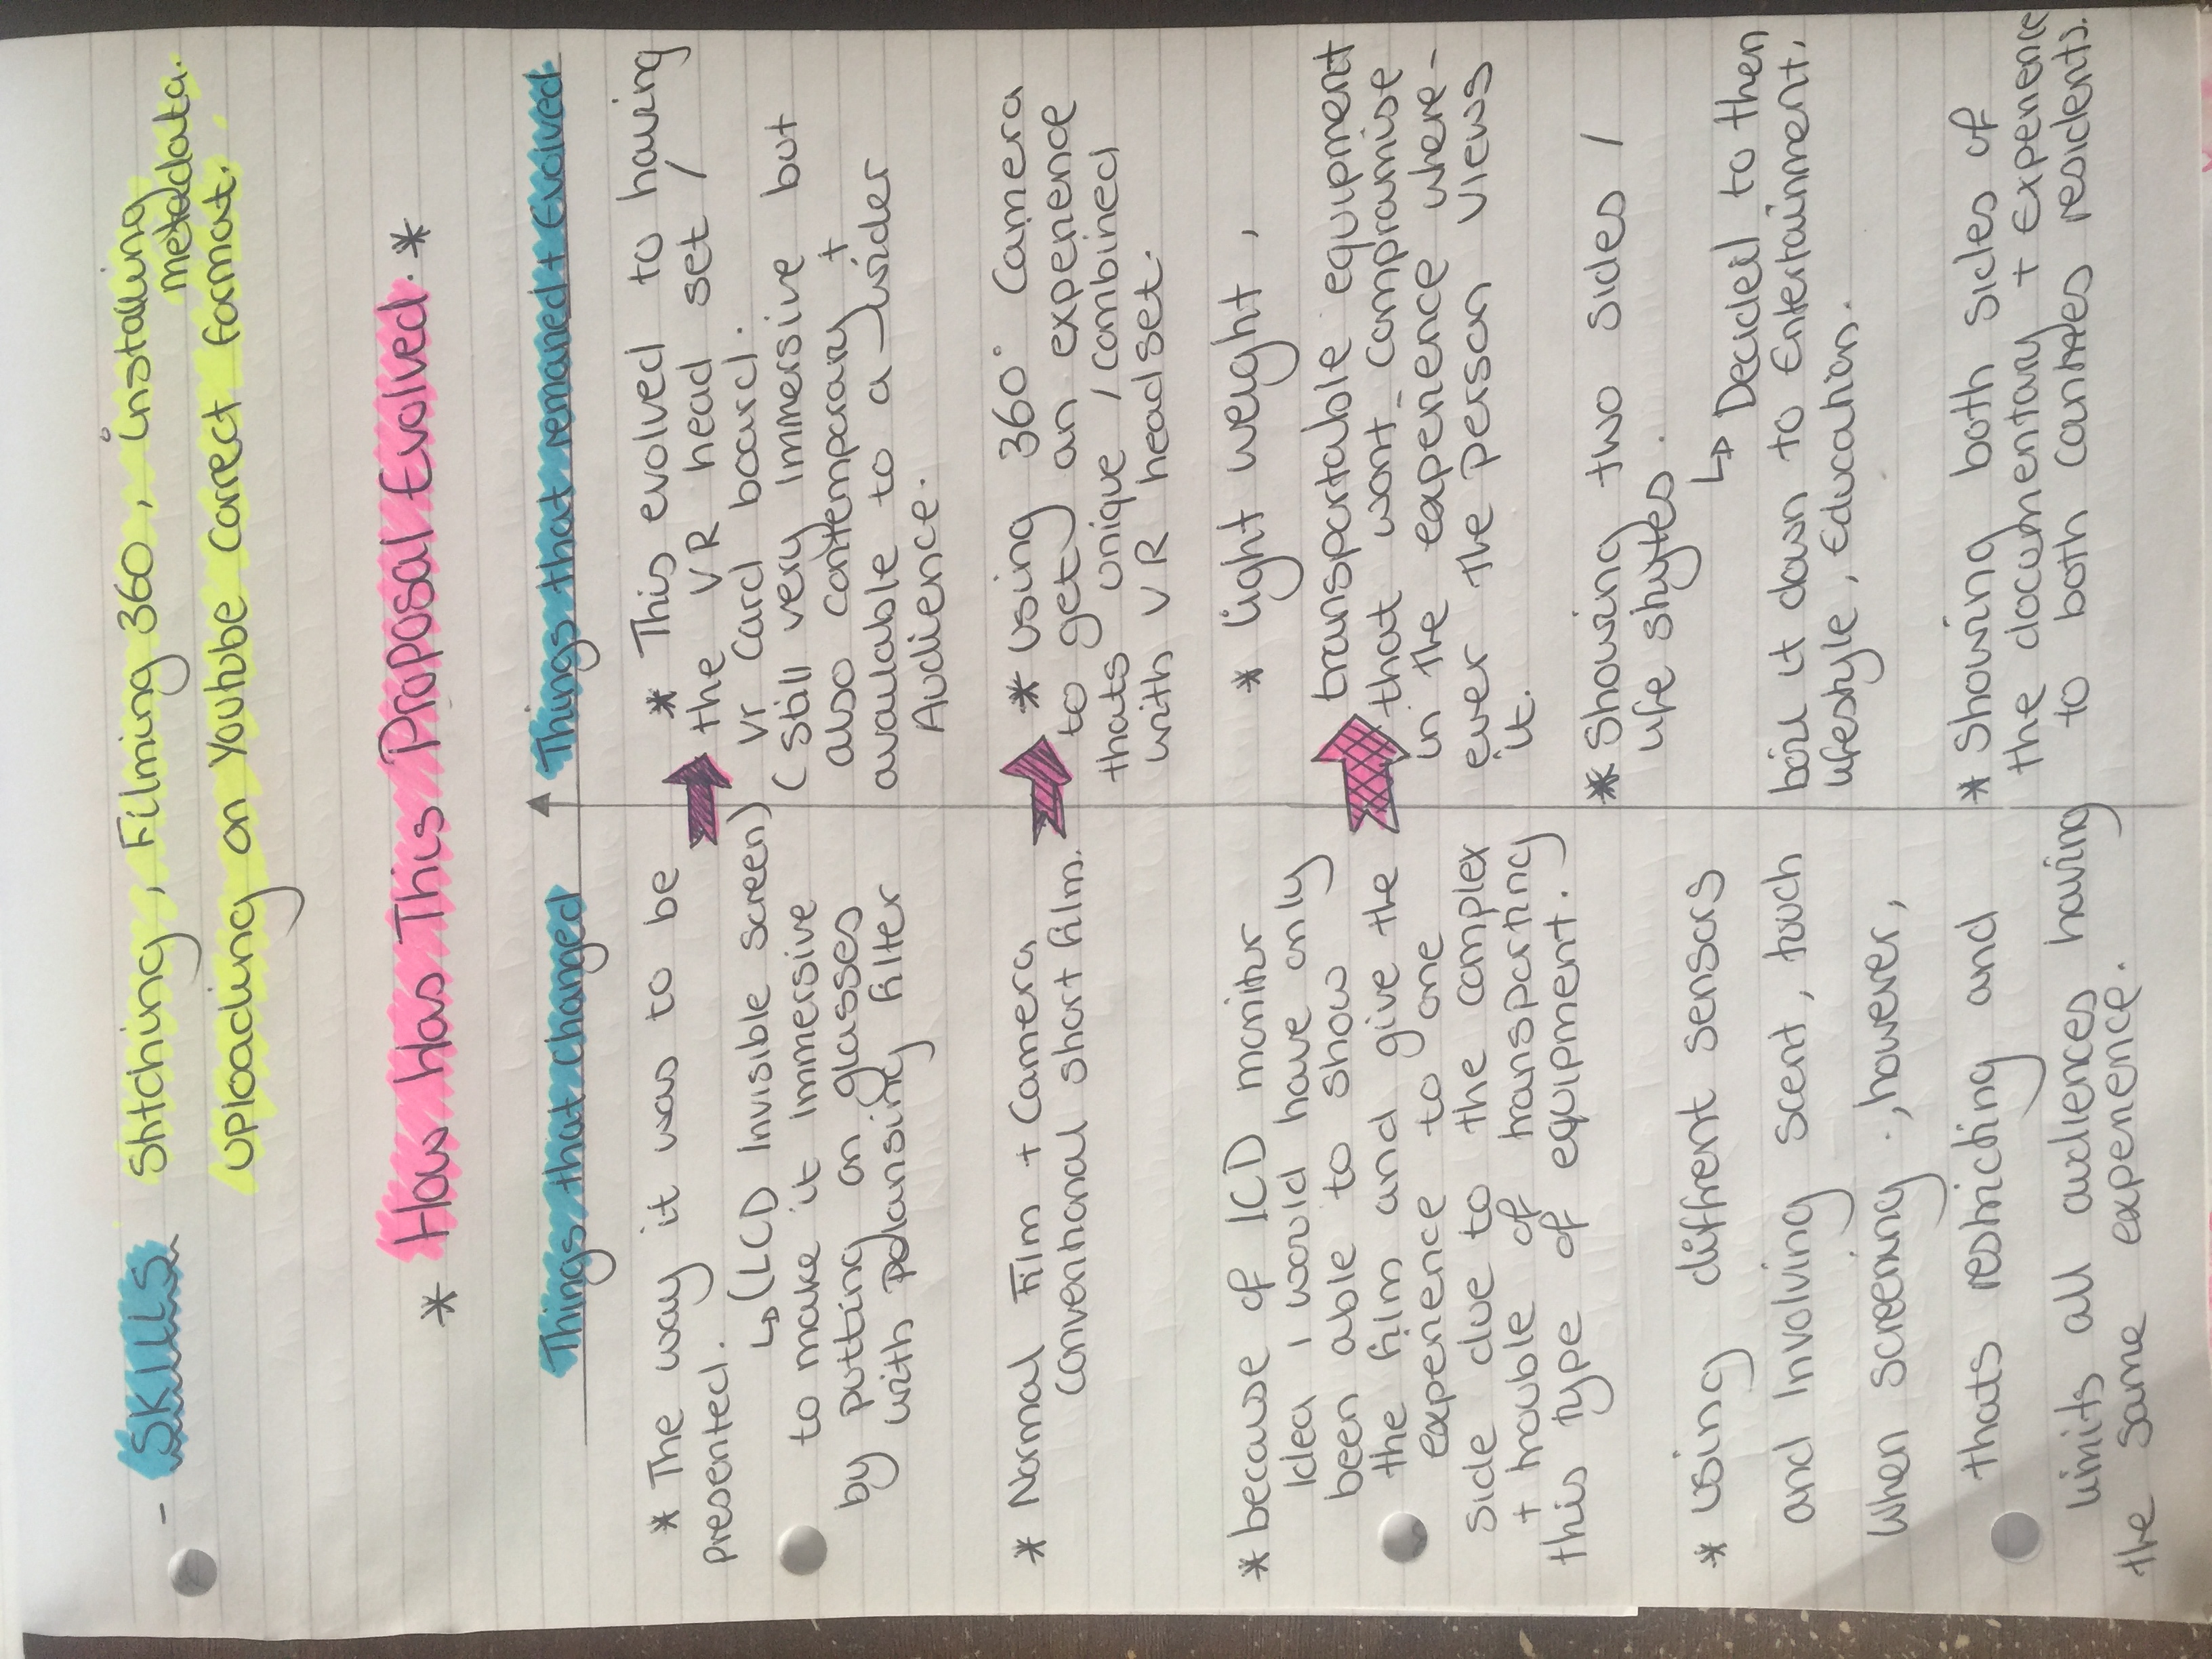 - SKILLS Stitching, Filming 360, installing metadata.
uploading on Youtube correct format.
* How Has This Proposal Evolved. *
Things that Changed
* The way it was to be
presented.
↳ (LCD Invisible screen)
to make it immersive
by putting on glasses
with polarising filter
* Normal Film + Camera
conventional short film.
* because of lCD monitor
Idea i would have only
been able to show
the film and give the
experience to one
side due to the complex
+ trouble of transporting
this type of equipment.
* using diffrent sensors
and Involving scent, touch
When screening ., however,
thats restricting and
limits all audiences having
the same experience.
Things that remained + Evolved
* This evolved to having
the VR head set /
Vr Card board.
(still very immersive but
also contemporary +
available to a wider
Audience.
* using 360° Camera
to get an experience
thats unique / combined
with VR headset.
* light weight,
transportable equipment
that wont compramise
in the experience where-
ever the person views
it.
* Showing two sides /
life shytles.
↳ Decided to then
boil it down to Entertainment,
lifestyle, Education.
* Showing both sides of
the documentary + Experience
to both residents.